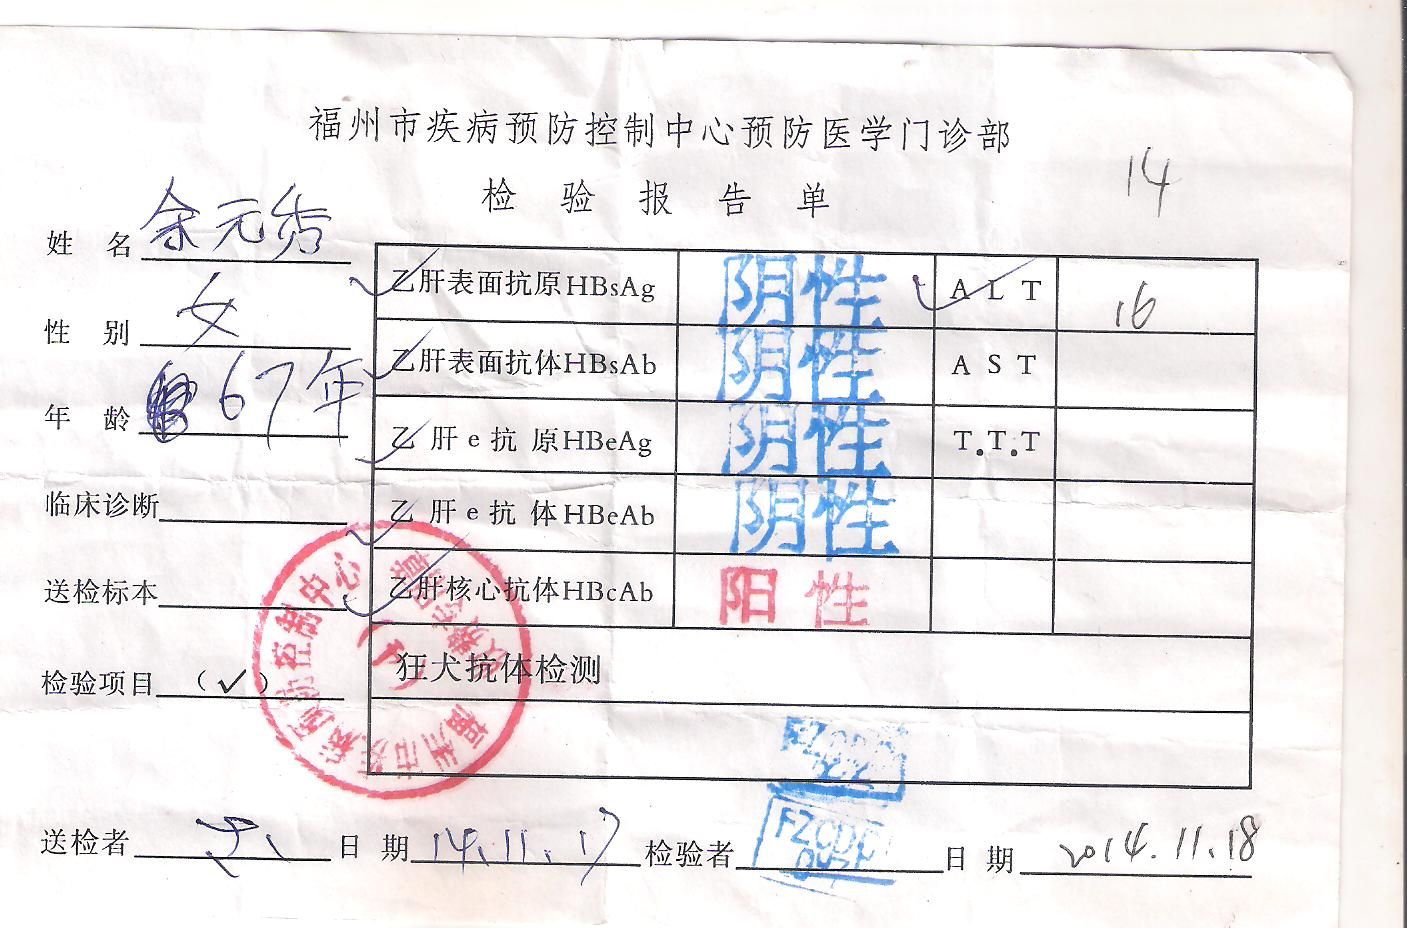 福州市疾病预防控制中心预防医学门诊部
14
检验报告单
姓名 余元
性别 女
年龄 67年
临床诊断
送检标本
检验项目 (✓)
乙肝表面抗原HBsAg 阴性 ALT 16
乙肝表面抗体HBsAb 阴性 AST
乙肝e抗原HBeAg 阴性 T.T.T
乙肝e抗体HBeAb 阴性
乙肝核心抗体HBcAb 阳性
狂犬抗体检测
福州市疾病预防控制中心
FZCDC
FZCDC
送检者 日期 14.11.17 检验者 日期 2014.11.18